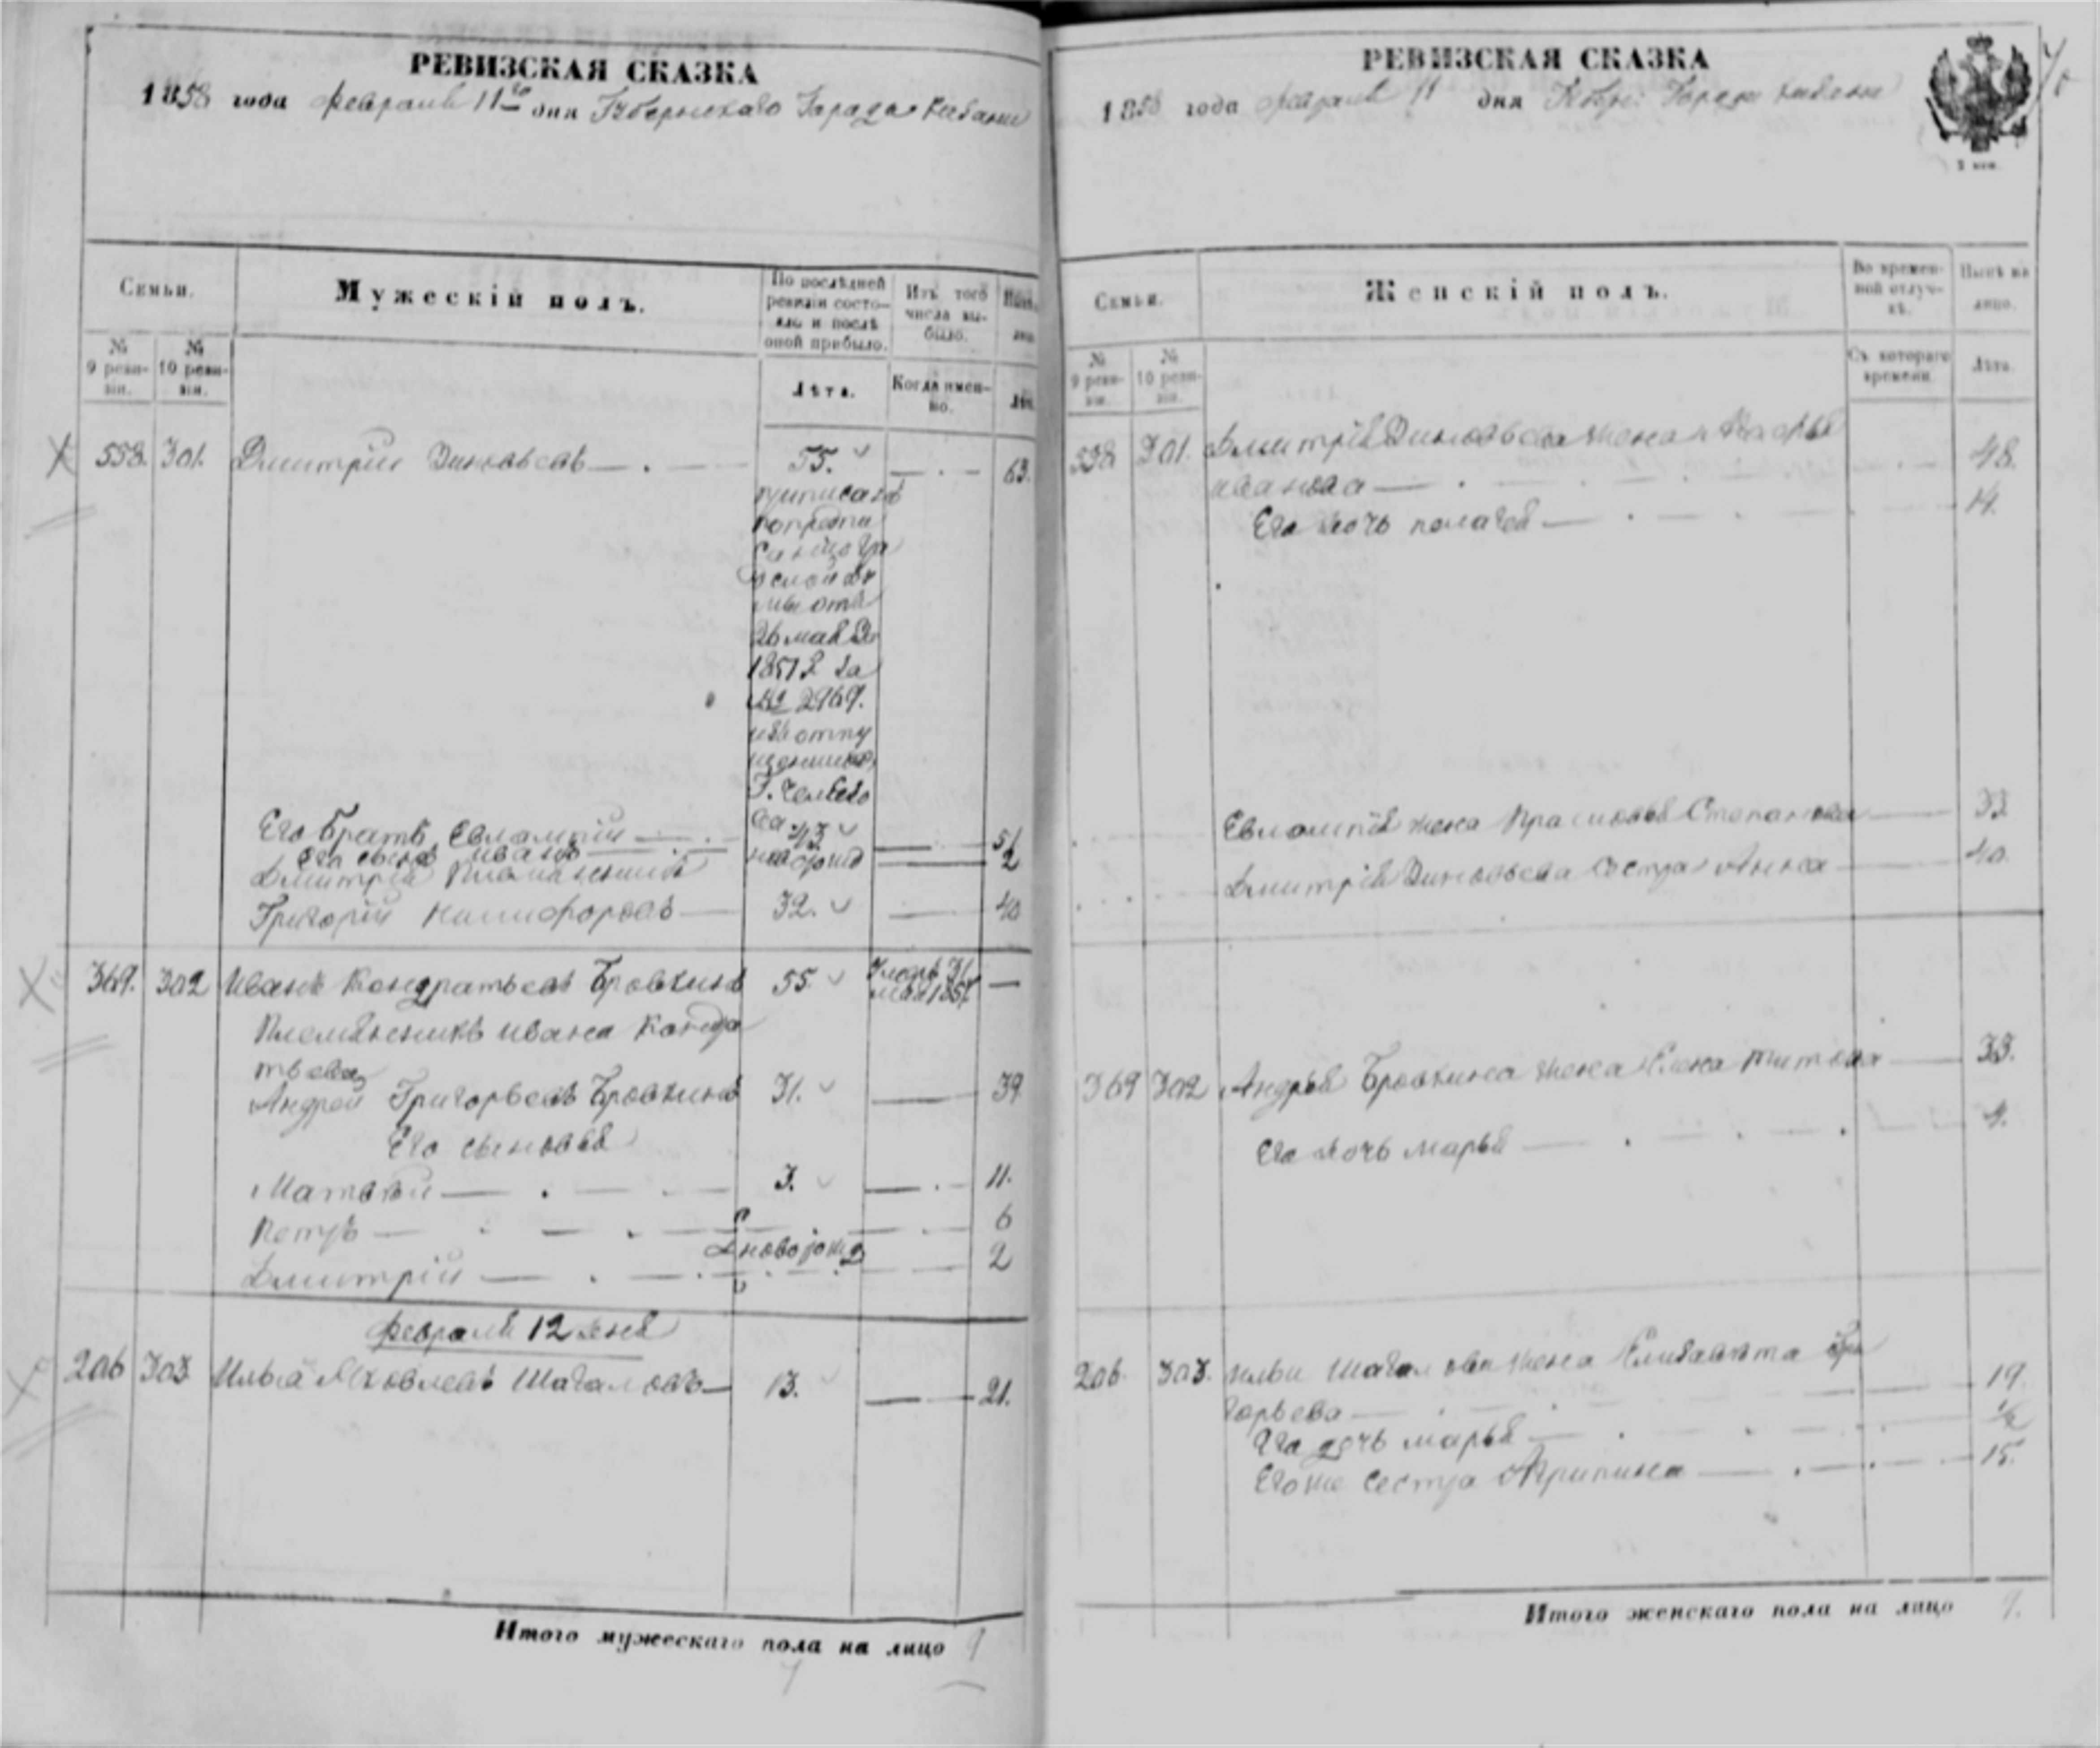 РЕВИЗСКАЯ СКАЗКА
1858 года Февраля 11го дня Губернскаго Города Казани
Семьи.
Мужескій полъ.
По послѣдней ревизіи состояло и послѣ оной прибыло.
Изъ того числа выбыло.
№ 9 ревизіи.
№ 10 ревизіи.
Лѣта.
Когда именно.
558. 301. Дмитрій Зиновьевъ 55. 63.
26 мая
1851
№ 2969.
Его братъ Евлампій 43 51
Его сынъ Иванъ 2
Дмитрія племянникъ
Григорій Никифоровъ 32. 40
369. 302 Иванъ Кондратьевъ Бровкинъ 55 —
Племянникъ Ивана Кондра
тьева
Андрей Григорьевъ Бровкинъ 31. 39
Его сыновья
Матвѣй 3. 11.
Петръ 6
новорожд
Дмитрій 2
Февраля 12 дня
206 303 Илья Яковлевъ Шагаловъ 13. 21.
Итого мужескаго пола на лицо 9
РЕВИЗСКАЯ СКАЗКА
1858 года Февраля 11 дня Губер: Города Казани
2 коп.
Семьи.
Женскій полъ.
Во временной отлучкѣ.
Нынѣ на лицо.
№ 9 ревизіи.
№ 10 ревизіи.
Съ котораго времени.
Лѣта.
558 301. Дмитрія Зиновьева жена
Иванова 48.
Его дочь Пелагея 14.
Евлампія жена Прасковья Степанова 33
Дмитрія Зиновьева сестра Анна 40.
369 302 Андрея Бровкина жена Елена Титова 33.
Его дочь Марья 4.
206. 303. Ильи Шагалова жена Елизавета Гри
горьева 19.
Его дочь Марья ½
Его же сестра Агрипина 15.
Итого женскаго пола на лицо 9.